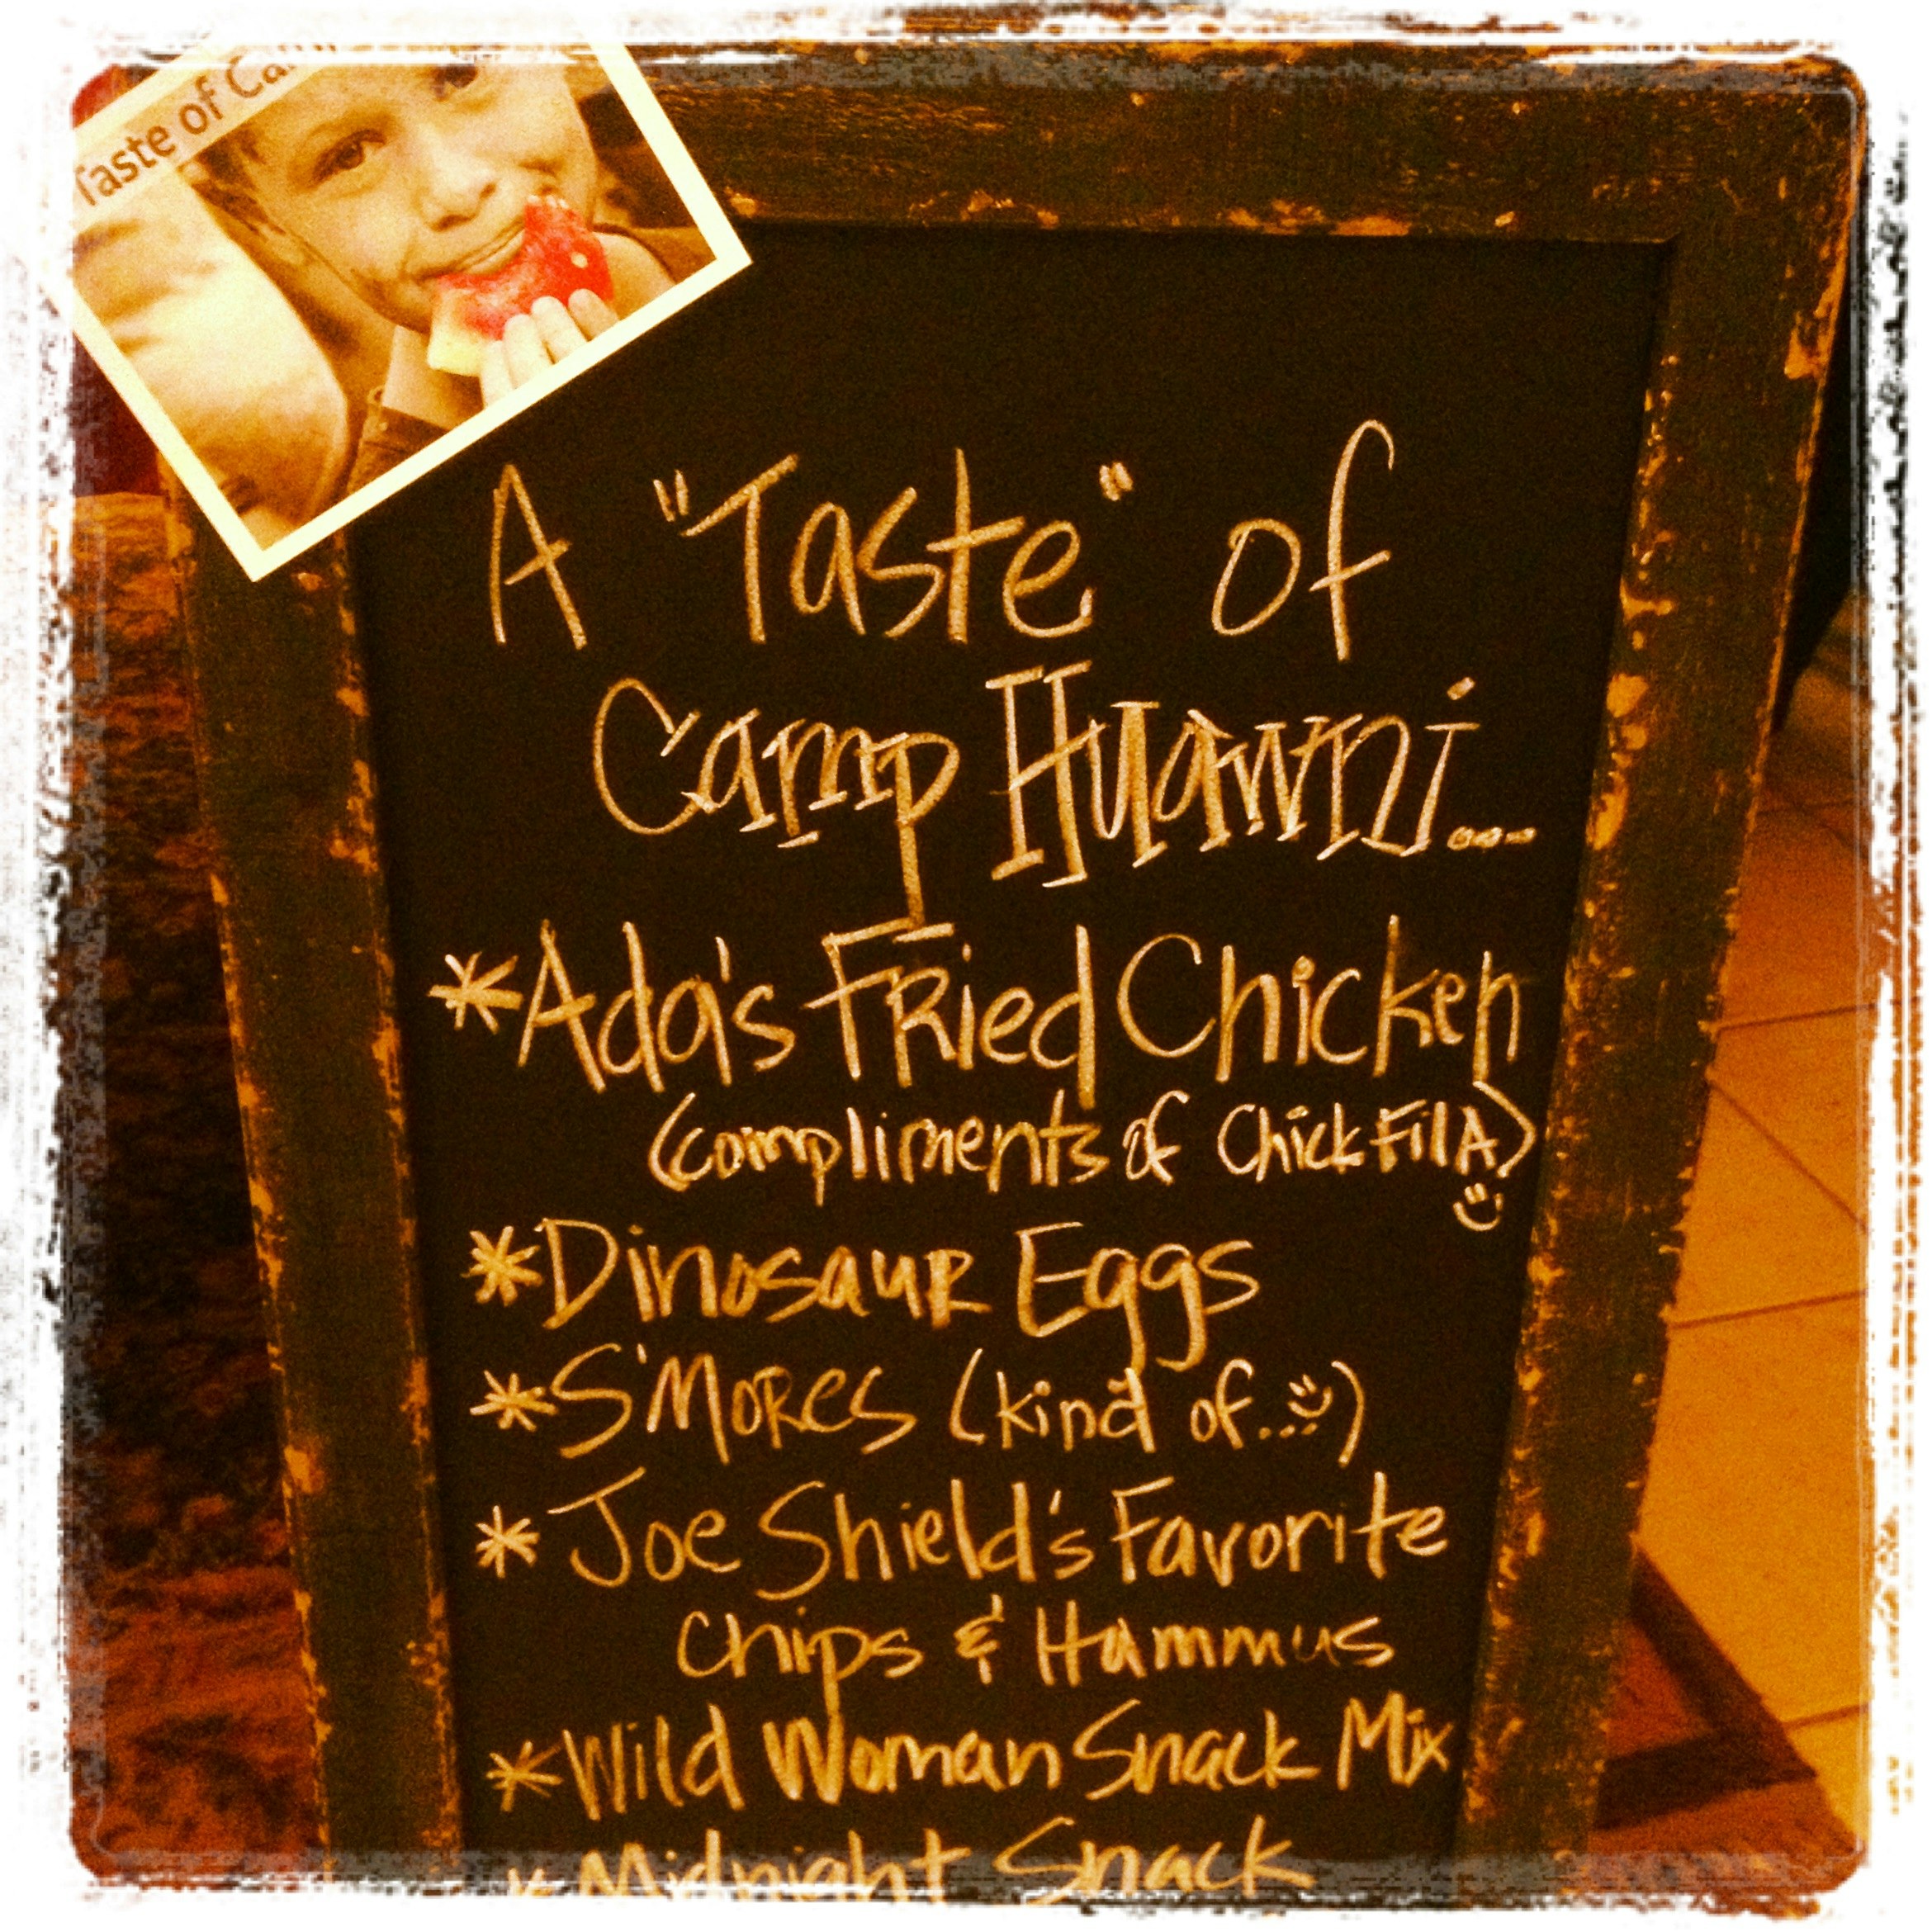 Taste of
A "Taste" of
Camp Huawni...
*Ada's Fried Chicken
(compliments of Chick Fil A)
*Dinosaur Eggs
*S'Mores (kind of...)
*Joe Shield's Favorite
Chips & Hammus
*Wild Woman Snack Mix
*Midnight Snack